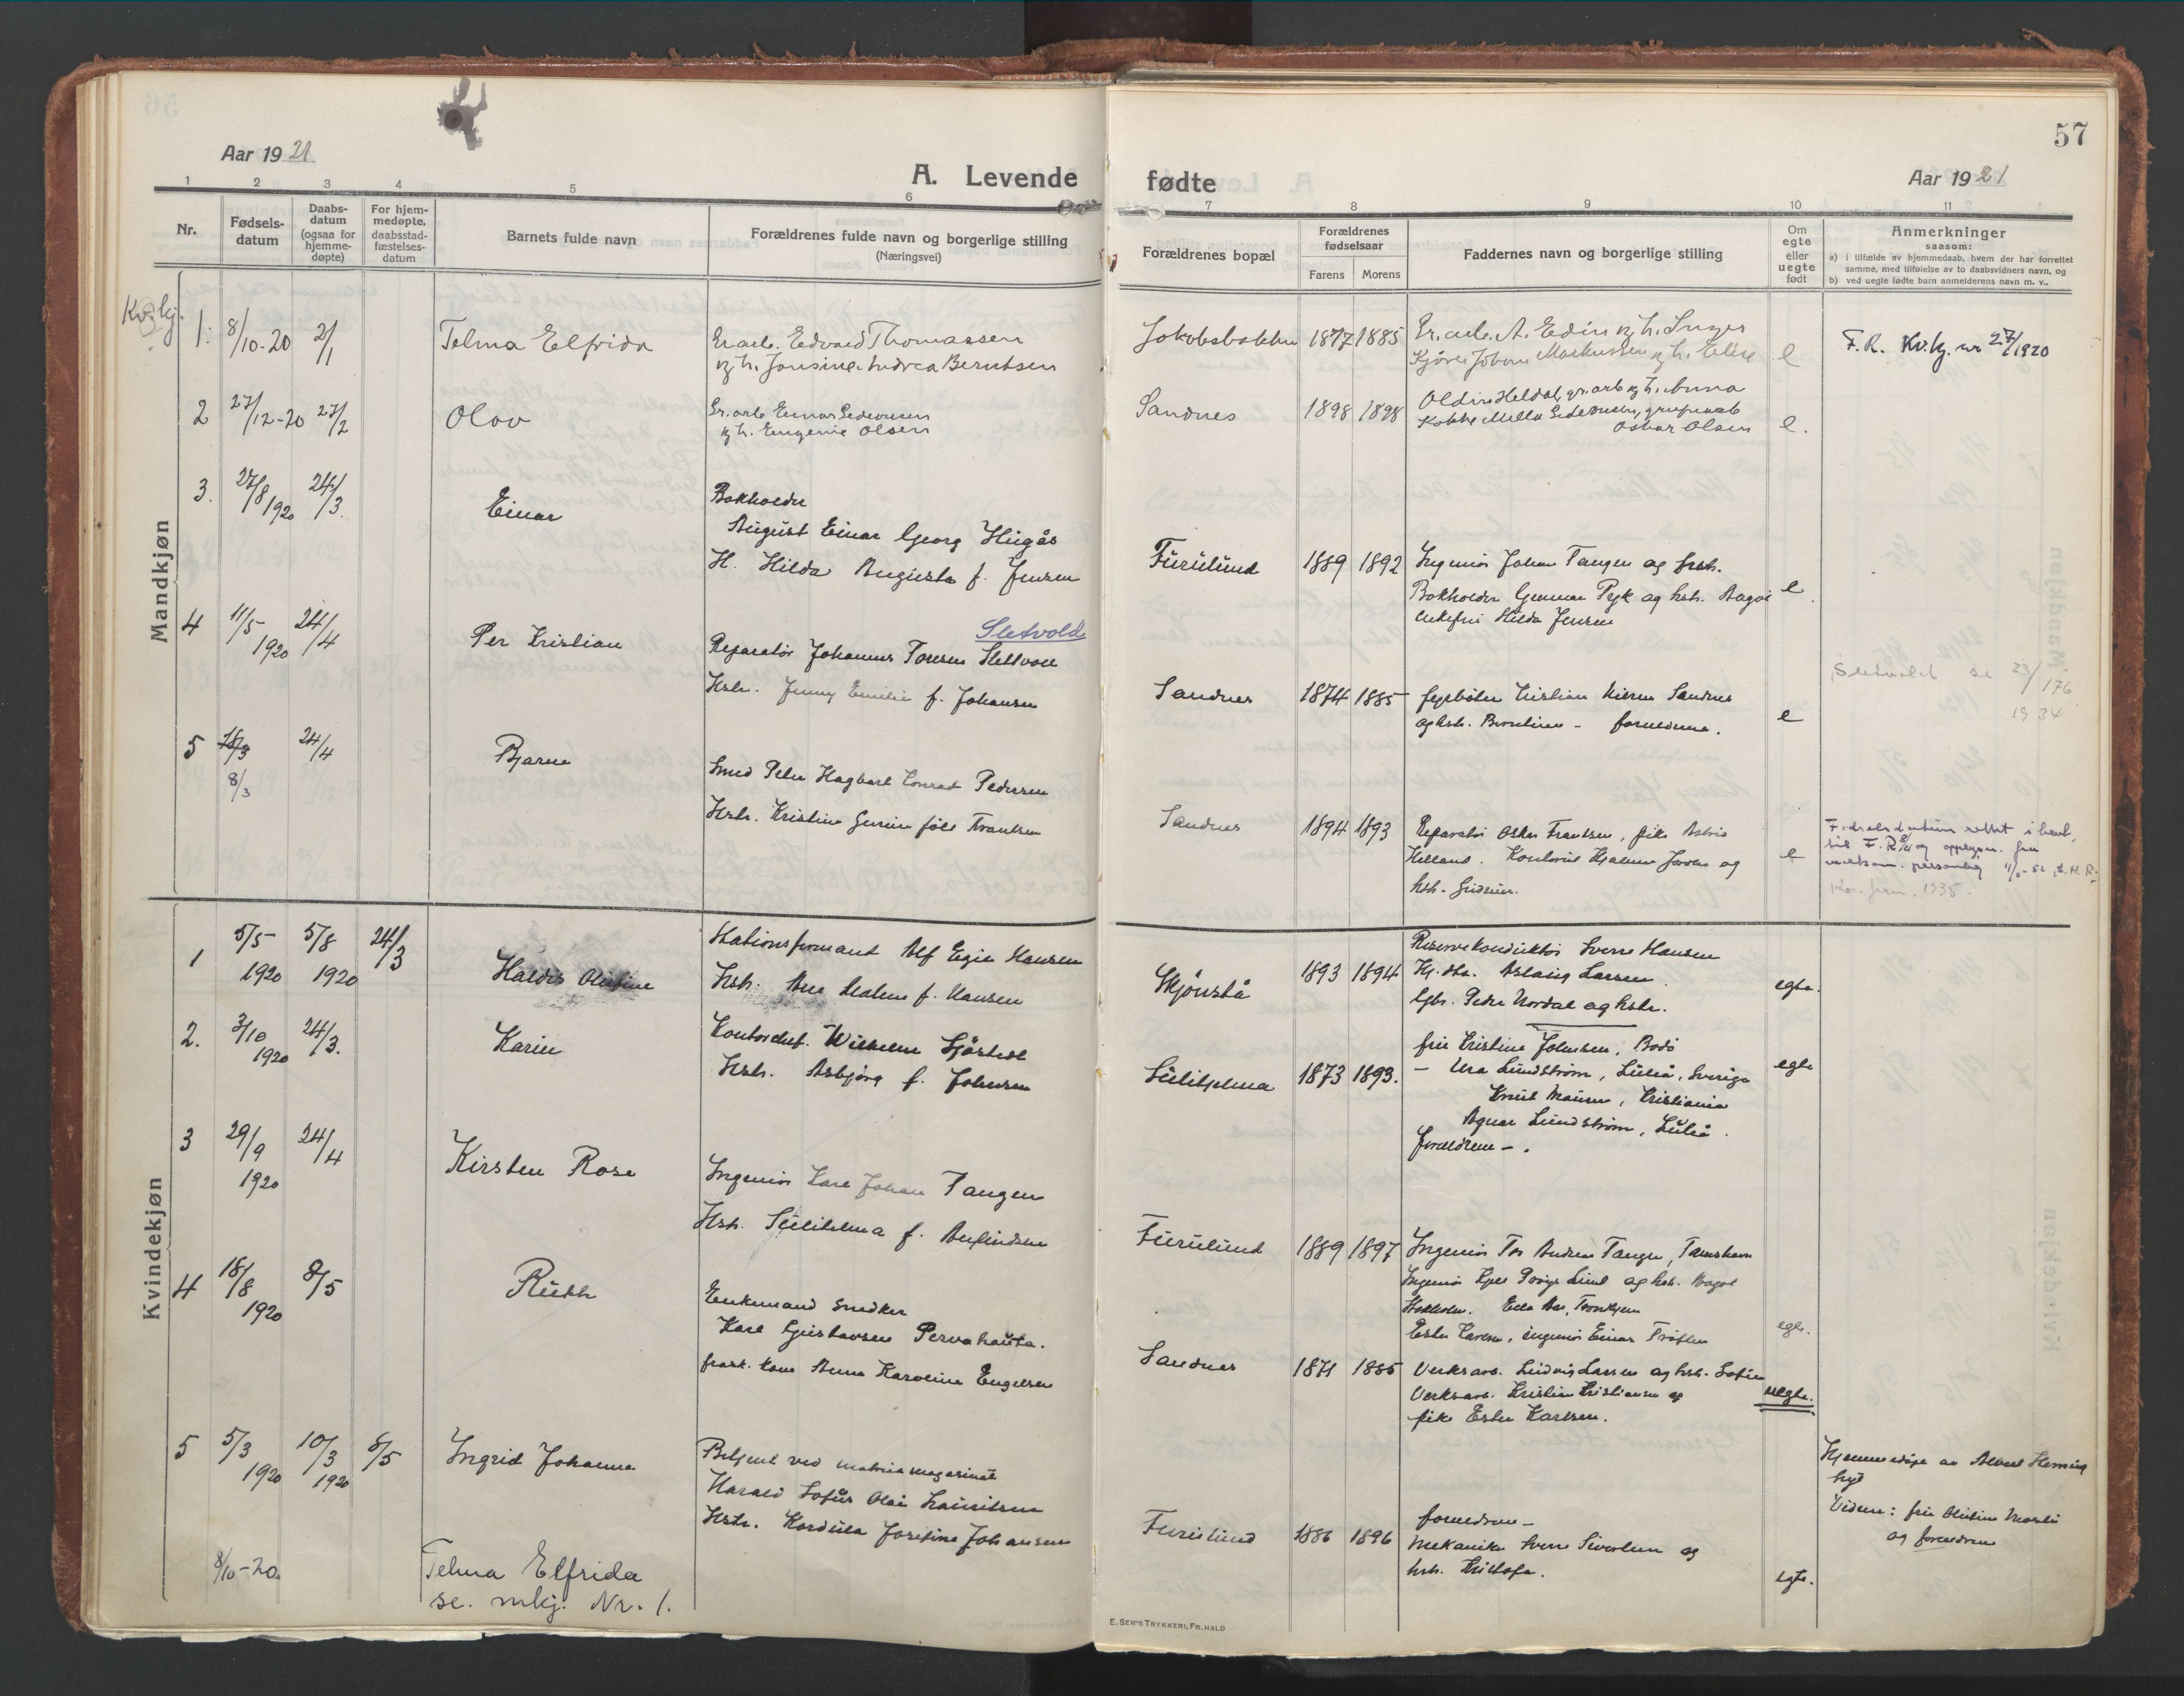 57
Aar 1921
A. Levende
fødte
Aar 1921
1 2 3 4 5 6 7 8 9 10 11
Nr.
Fødsels-
datum
Daabs-
datum
(ogsaa for
hjemme-
døpte)
For hjem-
medøpte,
daabsstad-
fæstelses-
datum
Barnets fulde navn
Forældrenes fulde navn og borgerlige stilling
(Næringsvei)
Forældrenes bopæl
Forældrenes
fødselsaar
Farens Morens
Faddernes navn og borgerlige stilling
Om
egte
eller
uegte
født
Anmerkninger
saasom:
a) i tilfælde av hjemmedaab, hvem der har forrettet
samme, med tilføielse av to daabsvidners navn, og
b) ved uegte fødte barn anmelderens navn m. v..
Mandkjøn
Kv.kj.
1. 8/10-20 2/1 Telma Elfrida
Gr.arb. Edvard Thomassen
og h. Jonsine Andrea Berntsen
Jakobsbakken 1877 1885
Gr. arb. A. Edin og h. Inger
Kjører Johan Markussen og h. Elise
e
F.R. Kv.kj. nr 27/1920
2 27/12-20 27/2 Olav
Gr. arb. Einar
og h. Eugenie Olsen
Sandnes 1898 1898
Heldal, gr. arb og h. Anna
Oskar Olsen
e.
3. 27/8 1920 24/3. Einar
Bokholder
August Einar Georg Hugås
H. Hilda Augusta f. Jensen
Furulund 1889 1892
Ingeniør Johan Tangen og hstr.
Bokholder Gunnar Pyk og hstr. Aagot
enkefru Hilda Jensen
e
4 11/5 1920 24/4 Per Kristian
Sletvold
Reparatør Johannes Toresen
Hstr. Jenny Emilie f. Johansen
Sandnes 1874 1885
Kristian Nilsen Sandnes
og hstr. - forældrene.
e
Sletvold se 23/176
1934
5 24/4 Bjarne
8/3
Smed Peder Hagbart Conrad Pedersen
Hstr. Kristine Gurine født Frantsen
Sandnes 1894 1893
Reparatør Oskar Frantsen, pike Astrid
Helland. Hjalmar og
hstr. Gudrun.
e
Fødselsdatum rettet i henh.
til F.R. og opplysn. fra
personlig
Konfirm. 1935.
Kvindekjøn
1 5/5 1920 5/8 1920 24/3 Haldis Olufine
Stationsformand Alf Egil Hansen
Hstr. f. Hansen
Skjønstå 1893 1894
Reservekonduktør Sverre Hansen
Aslaug Larsen.
Gbr. Peder Nordal og hstr.
egte.
2. 3/10 1920 24/3. Karin
Kontorchef. Wilhelm Sjöstedt
Hstr. Asbjørg f. Johnsen
Sulitjelma 1873 1893.
fru Kristine Johnsen, Bodø
- Lundström, Luleå, Sverige
Knut , Kristiania
Agnar Lundström, Luleå.
forældrene -.
egte
3 29/9 1920 24/4 Kirsten Rosa
Ingeniør Karl Johan Tangen
Hstr. Sulitelma f. Anfindsen
Furulund 1889 1897
Ingeniør Tor Andreas Tangen,
Ingeniør og hstr. Aagot
Stokholm. Ella , Trondhjem
Ester Larsen, ingeniør Einar
egte.
4 18/8 1920 8/5 Ruth
Enkemand snedker
Karl Gustavsen Pervahauta.
frask. kone Anna Karoline Engelsen
Sandnes 1871 1885
Verksarb. Ludvig Larsen og hstr. Sofie
Verksarb. Kristian Kristiansen og
pike Ester Karlsen.
uegte.
5 5/3 1920 10/3 1920 8/5 Ingrid Johanne
Betjent ved
Harald Sofus Olai Lauritsen
Hstr. Kordula Josefine Johansen
Furulund 1886 1896
forældrene -
mekaniker Sverre Sivertsen og
hstr.
egte.
Hjemmedøpt av Albert Hemming
Vidner: fru Olufine
og forældrene
8/10-20. Telma Elfrida
se. mkj. Nr. 1.
E. SEM'S TRYKKERI, FR.HALD